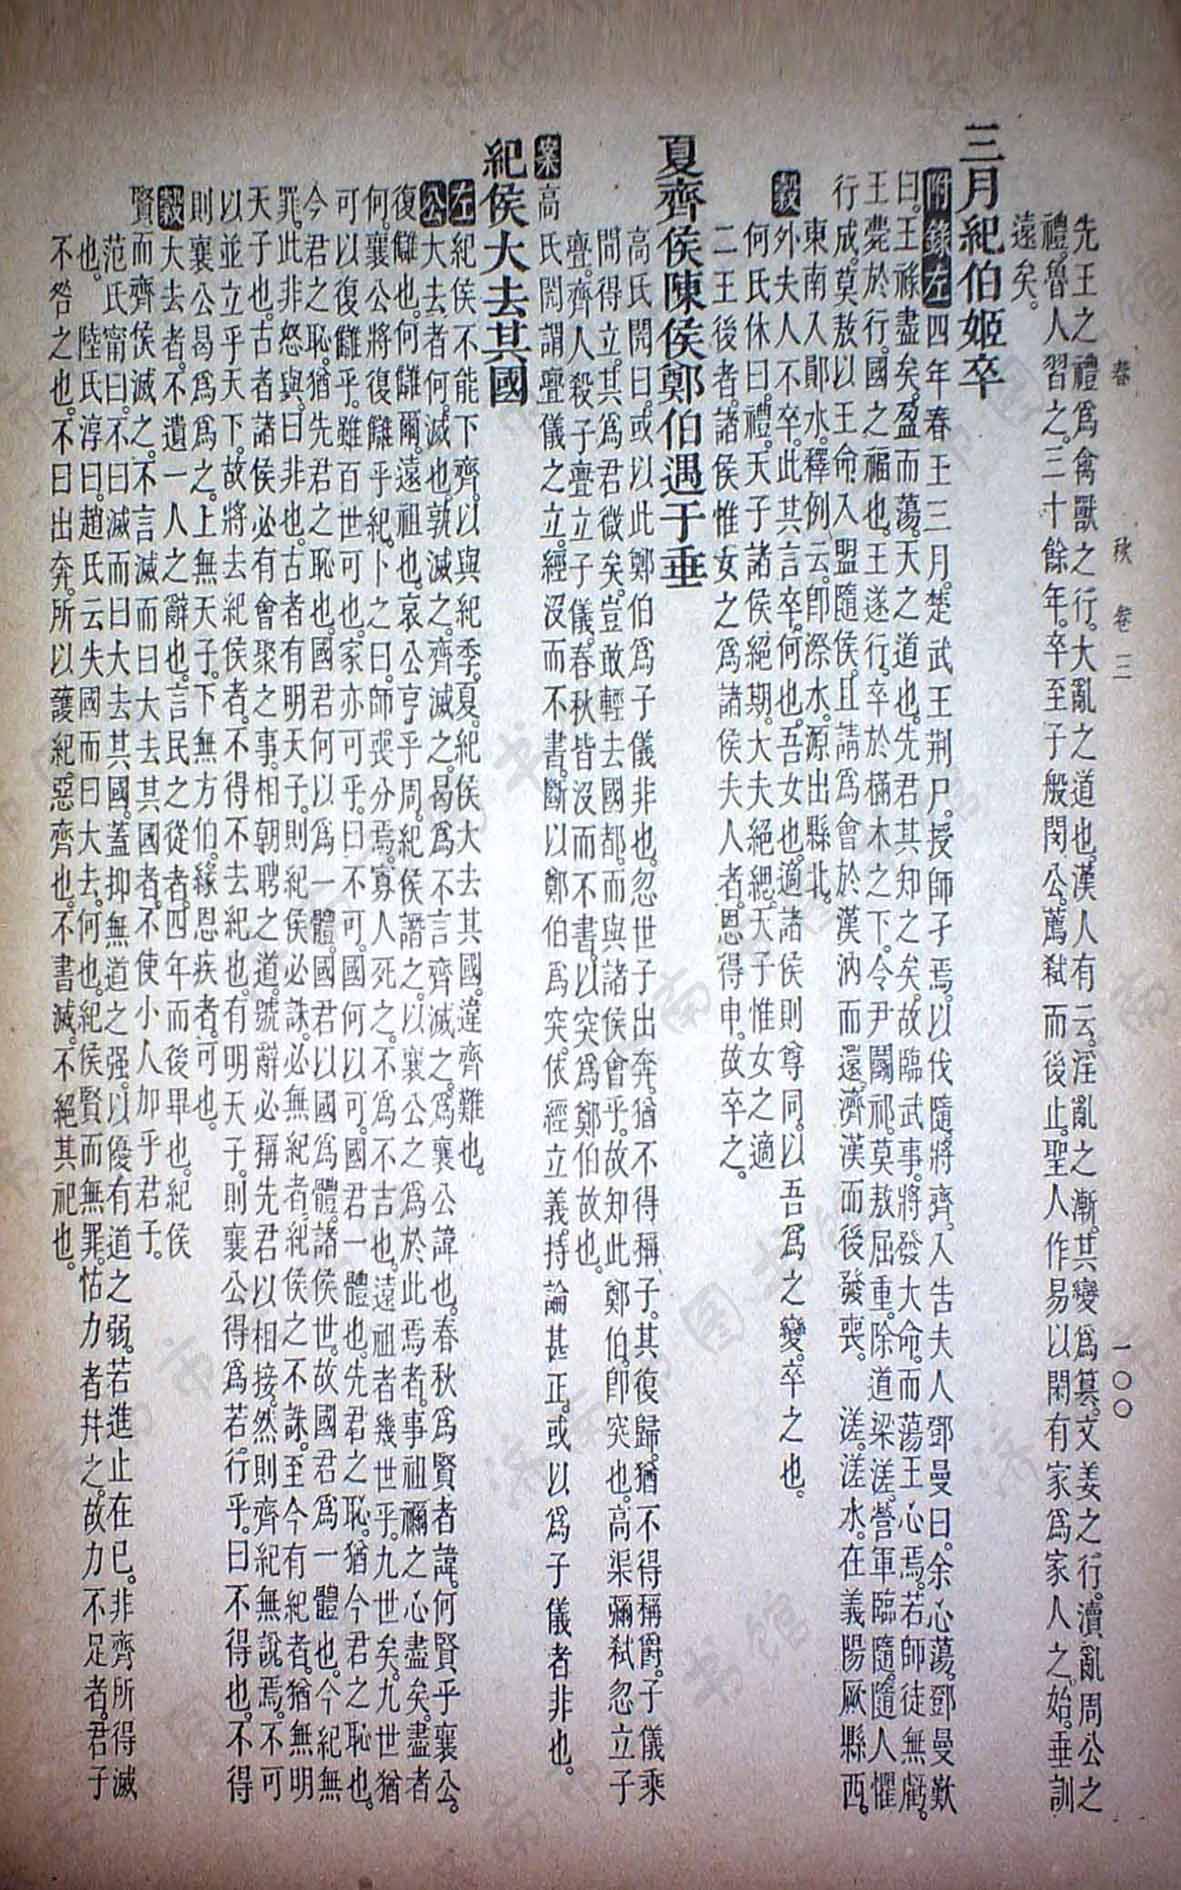 春 秋 卷三 一〇〇
先王之禮爲禽獸之行。大亂之道也。漢人有云。淫亂之漸。其變爲篡。文姜之行。瀆亂周公之
禮。魯人習之。三十餘年。卒至子般閔公。薦弒而後止。聖人作易以閑有家爲家人之始。垂訓
遠矣。
三月紀伯姬卒
附錄左四年春王三月。楚武王荆尸。授師孑焉。以伐隨。將齊。入告夫人鄧曼曰。余心蕩。鄧曼歎
曰。王祿盡矣。盈而蕩。天之道也。先君其知之矣。故臨武事。將發大命。而蕩王心焉。若師徒無虧。
王薨於行。國之福也。王遂行。卒於樠木之下。令尹鬭祁。莫敖屈重。除道梁溠。營軍臨隨。隨人懼
行成。莫敖以王命入盟隨侯。且請爲會於漢汭而還。濟漢而後發喪。 溠。溠水。在義陽厥縣西。
東南入鄖水。釋例云。卽㵐水。源出縣北。
穀外夫人不卒。此其言卒。何也。吾女也。適諸侯則尊同。以吾爲之變。卒之也。
何氏休曰。禮。天子諸侯絕期。大夫絕緦。天子惟女之適
二王後者。諸侯惟女之爲諸侯夫人者。恩得申。故卒之。
夏齊侯陳侯鄭伯遇于垂
高氏閌曰。或以此鄭伯爲子儀非也。忽世子出奔。猶不得稱子。其復歸。猶不得稱爵。子儀乘
間得立。其爲君微矣。豈敢輕去國都。而與諸侯會乎。故知此鄭伯。卽突也。高渠彌弒忽立子
亹。齊人殺子亹立子儀。春秋皆沒而不書。以突爲鄭伯故也。
案高氏閌謂亹儀之立。經沒而不書。斷以鄭伯爲突。依經立義。持論甚正。或以爲子儀者非也。
紀侯大去其國
左紀侯不能下齊。以與紀季。夏。紀侯大去其國。違齊難也。
公大去者何。滅也。孰滅之。齊滅之。曷爲不言齊滅之。爲襄公諱也。春秋爲賢者諱。何賢乎襄公。
復讎也。何讎爾。遠祖也。哀公亨乎周。紀侯譖之。以襄公之爲於此焉者。事祖禰之心盡矣。盡者
何。襄公將復讎乎紀。卜之曰。師喪分焉。寡人死之。不爲不吉也。遠祖者幾世乎。九世矣。九世猶
可以復讎乎。雖百世可也。家亦可乎。曰不可。國何以可。國君一體也。先君之恥。猶今君之恥也。
今君之恥。猶先君之恥也。國君何以爲一體。國君以國爲體。諸侯世。故國君爲一體也。今紀無
罪。此非怒與。曰非也。古者有明天子。則紀侯必誅。必無紀者。紀侯之不誅。至今有紀者。猶無明
天子也。古者諸侯必有會聚之事。相朝聘之道。號辭必稱。先君以相接。然則齊紀無說焉。不可
以並立乎天下。故將去紀侯者。不得不去紀也。有明天子。則襄公得爲若行乎。曰不得也。不得
則襄公曷爲爲之。上無天子。下無方伯。緣恩疾者。可也。
穀大去者。不遺一人之辭也。言民之從者。四年而後畢也。紀侯
賢而齊侯滅之。不言滅而曰大去其國者。不使小人加乎君子。
范氏甯曰。不曰滅而曰大去其國。蓋抑無道之强。以優有道之弱。若進止在已。非齊所得滅
也。 陸氏淳曰。趙氏云失國而曰大去。何也。紀侯賢而無罪。怙力者幷之。故力不足者。君子
不咎之也。不曰出奔。所以護紀。惡齊也。不書滅。不絕其祀也。